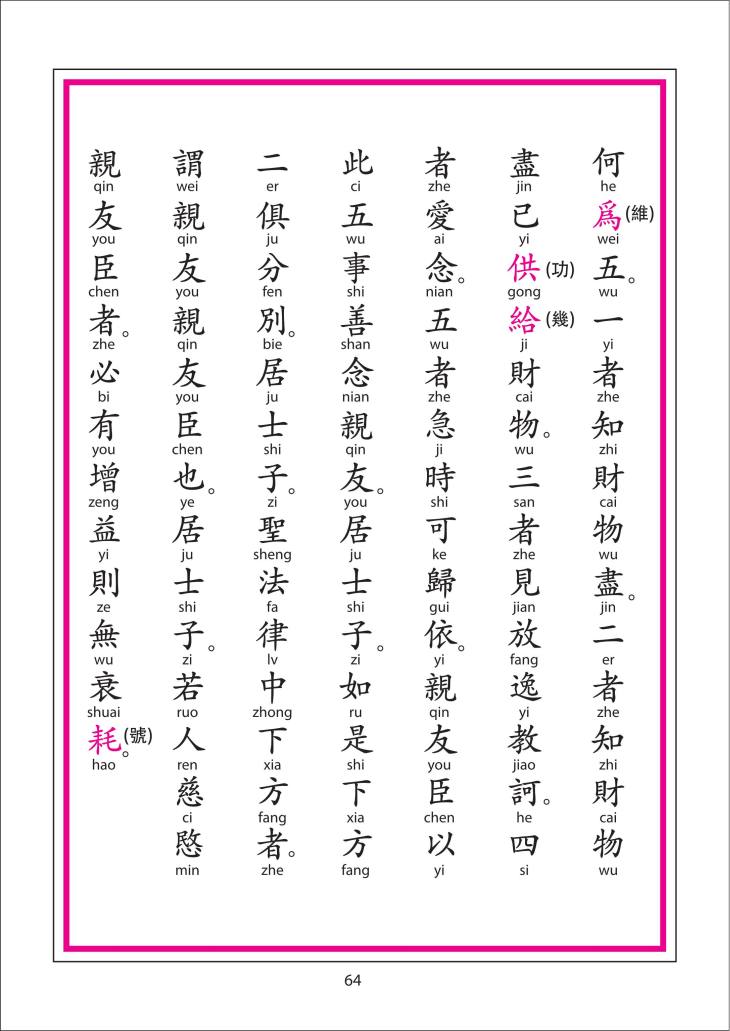 何爲(維)五。一者知財物盡。二者知財物
he wei wu yi zhe zhi cai wu jin er zhe zhi cai wu
盡已供(功)給(幾)財物。三者見放逸教訶。四
jin yi gong ji cai wu san zhe jian fang yi jiao he si
者愛念。五者急時可歸依。親友臣以
zhe ai nian wu zhe ji shi ke gui yi qin you chen yi
此五事善念親友。居士子。如是下方
ci wu shi shan nian qin you ju shi zi ru shi xia fang
二俱分別。居士子。聖法律中下方者。
er ju fen bie ju shi zi sheng fa lv zhong xia fang zhe
謂親友親友臣也。居士子。若人慈愍
wei qin you qin you chen ye ju shi zi ruo ren ci min
親友臣者。必有增益則無衰耗(號)。
qin you chen zhe bi you zeng yi ze wu shuai hao
64